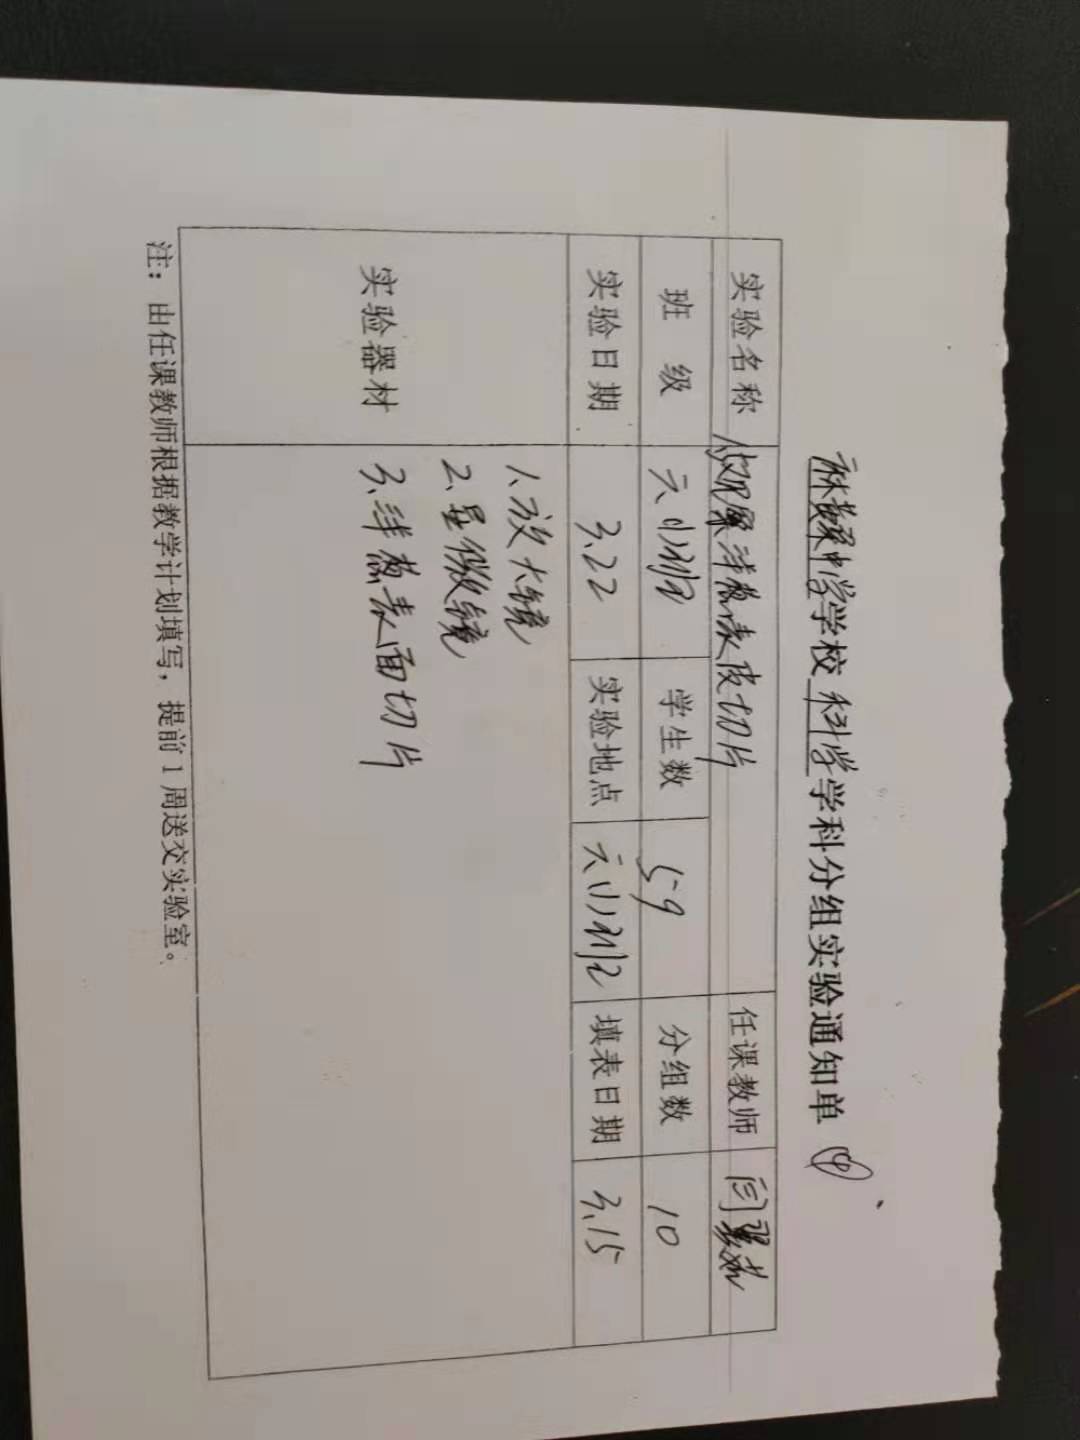 中学学校 科学学科分组实验通知单 ④
实验名称 观察洋葱表皮切片 任课教师 闫
班 级 六(1)班 学生数 59 分组数 10
实验日期 3.22 实验地点 六(1)班 填表日期 3.15
实验器材
1.放大镜
2.显微镜
3.洋葱表面切片
注：由任课教师根据教学计划填写，提前1周送交实验室。